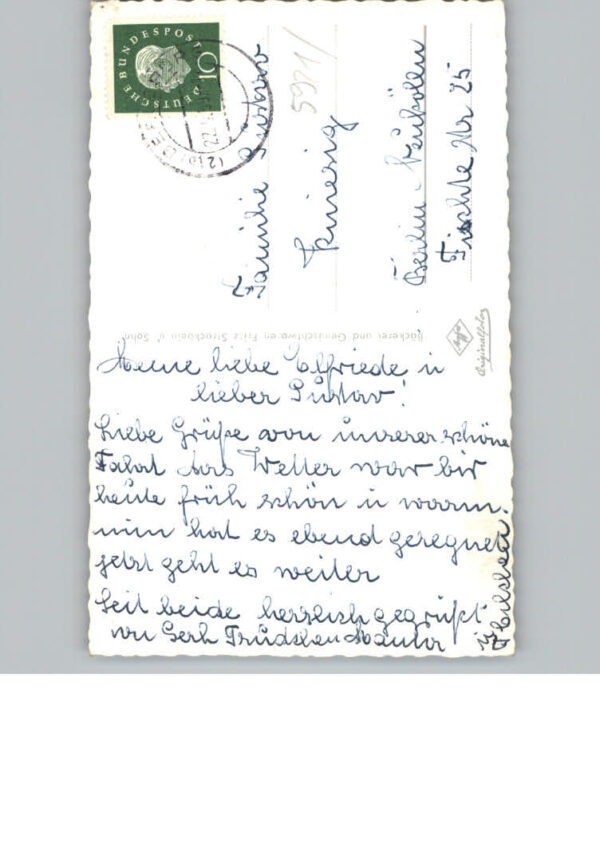 Meine liebe Elfriede u
lieber Gustav!
Liebe Grüße von unserer schöne
Fahrt das Wetter war bis
heute früh schön u warm.
nun hat es ebend geregnet
jetzt geht es weiter
Seit beide herzlich gegrüßt
von Gerh Trudchen
u
Familie Gustav
Berlin-Neuköln
Fichte Nr 25
5921/
DEUTSCHE BUNDESPOST
10
22.
Bäckerei und Gemischtwaren Fritz
u. Sohn
Agfa
Originalfoto